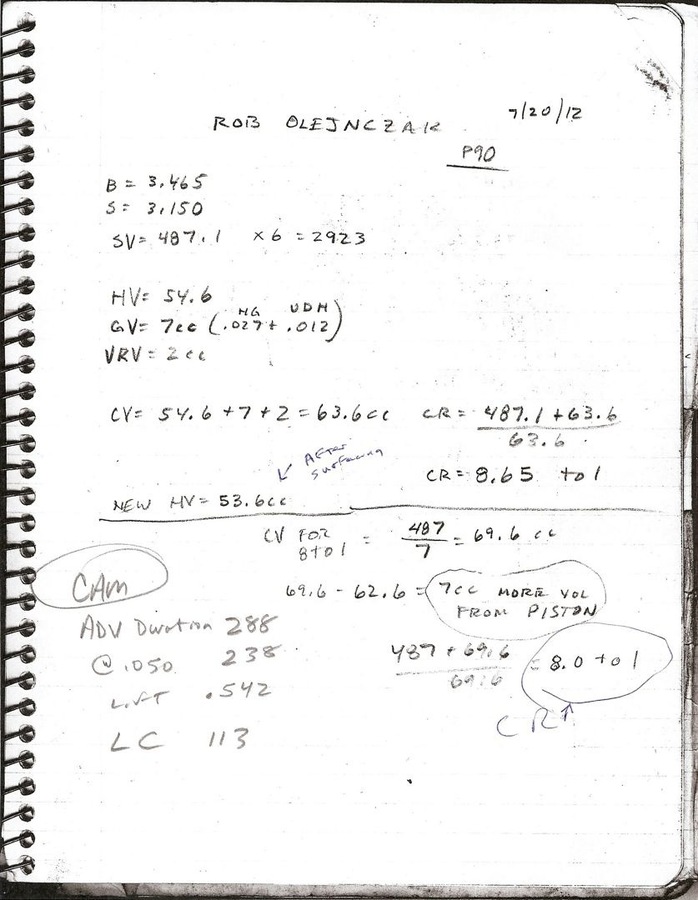 ROB OLEJNCZAK
7/20/12
P90
B = 3.465
S = 3.150
SV = 487.1 × 6 = 2923
HV = 54.6
HG UDH
GV = 7cc (.027 + .012)
VRV = 2cc
CV = 54.6 + 7 + 2 = 63.6cc
CR = 487.1 + 63.6
63.6
CR = 8.65 to 1
↙ AFTER
surfacing
NEW HV = 53.6cc
CV FOR
8 to 1 = 487 = 69.6 cc
7
69.6 - 62.6 = 7cc MORE VOL
FROM PISTON
487 + 69.6 = 8.0 to 1
69.6
CR↑
CAM
ADV Duration 288
@ .050 238
LIFT .542
LC 113